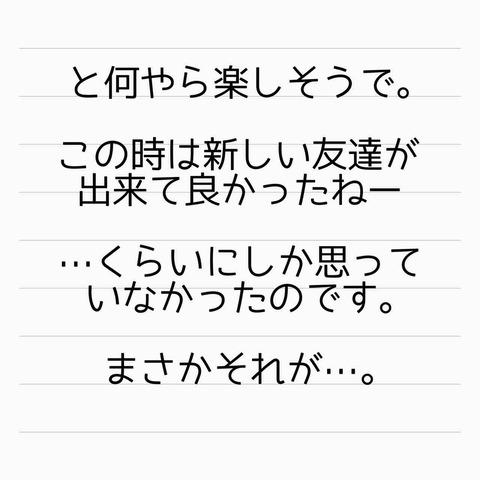 と何やら楽しそうで。
この時は新しい友達が
出来て良かったねー
…くらいにしか思って
いなかったのです。
まさかそれが…。